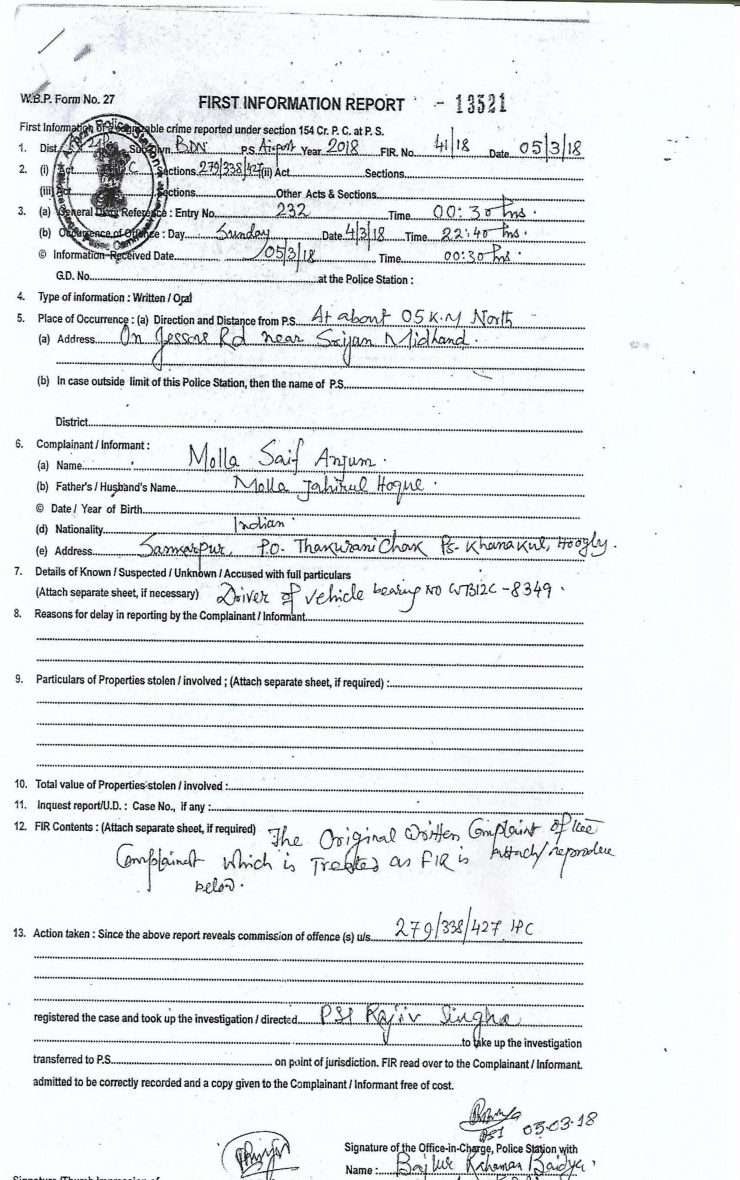 W.B.P. Form No. 27
FIRST INFORMATION REPORT - 13521
First Information of a cognizable crime reported under section 154 Cr. P. C. at P. S.
1. Dist. Sub Divn. BDN P.S. Airport Year 2018 FIR. No. 41/18 Date 05/3/18
2. (i) Act Sections 279/338/427 (ii) Act Sections
(iii) Act Sections Other Acts & Sections
3. (a) General Diary Reference : Entry No. 232 Time 00:30 hrs.
(b) Occurrence of Offence : Day Sunday Date 4/3/18 Time 22:40 hrs.
© Information Received Date 05/3/18 Time 00:30 hrs.
G.D. No. at the Police Station :
4. Type of information : Written / Oral
5. Place of Occurrence : (a) Direction and Distance from P.S. At about 05 K.M North
(a) Address On Jessore Rd near Srijan Midland.
(b) In case outside limit of this Police Station, then the name of P.S.
District
6. Complainant / Informant :
(a) Name Molla Saif Anjum.
(b) Father's / Husband's Name Molla Jahirul Hoque.
© Date / Year of Birth
(d) Nationality Indian
(e) Address P.O. Thakuranichak Ps- Khanakul, Hoogly.
7. Details of Known / Suspected / Unknown / Accused with full particulars
(Attach separate sheet, if necessary) Driver of vehicle bearing no WB12C-8349.
8. Reasons for delay in reporting by the Complainant / Informant
9. Particulars of Properties stolen / involved ; (Attach separate sheet, if required) :
10. Total value of Properties stolen / involved :
11. Inquest report/U.D. : Case No., if any :
12. FIR Contents : (Attach separate sheet, if required) The Original Written Complaint of the
Complainant which is Treated as FIR is Attach/reproduce
below.
13. Action taken : Since the above report reveals commission of offence (s) u/s. 279/338/427 IPC
registered the case and took up the investigation / directed PSI Rajiv Singha
to take up the investigation
transferred to P.S. on point of jurisdiction. FIR read over to the Complainant / Informant.
admitted to be correctly recorded and a copy given to the Complainant / Informant free of cost.
05-03-18
Signature of the Office-in-Charge, Police Station with
Name : Bajlur Rahaman Baidya